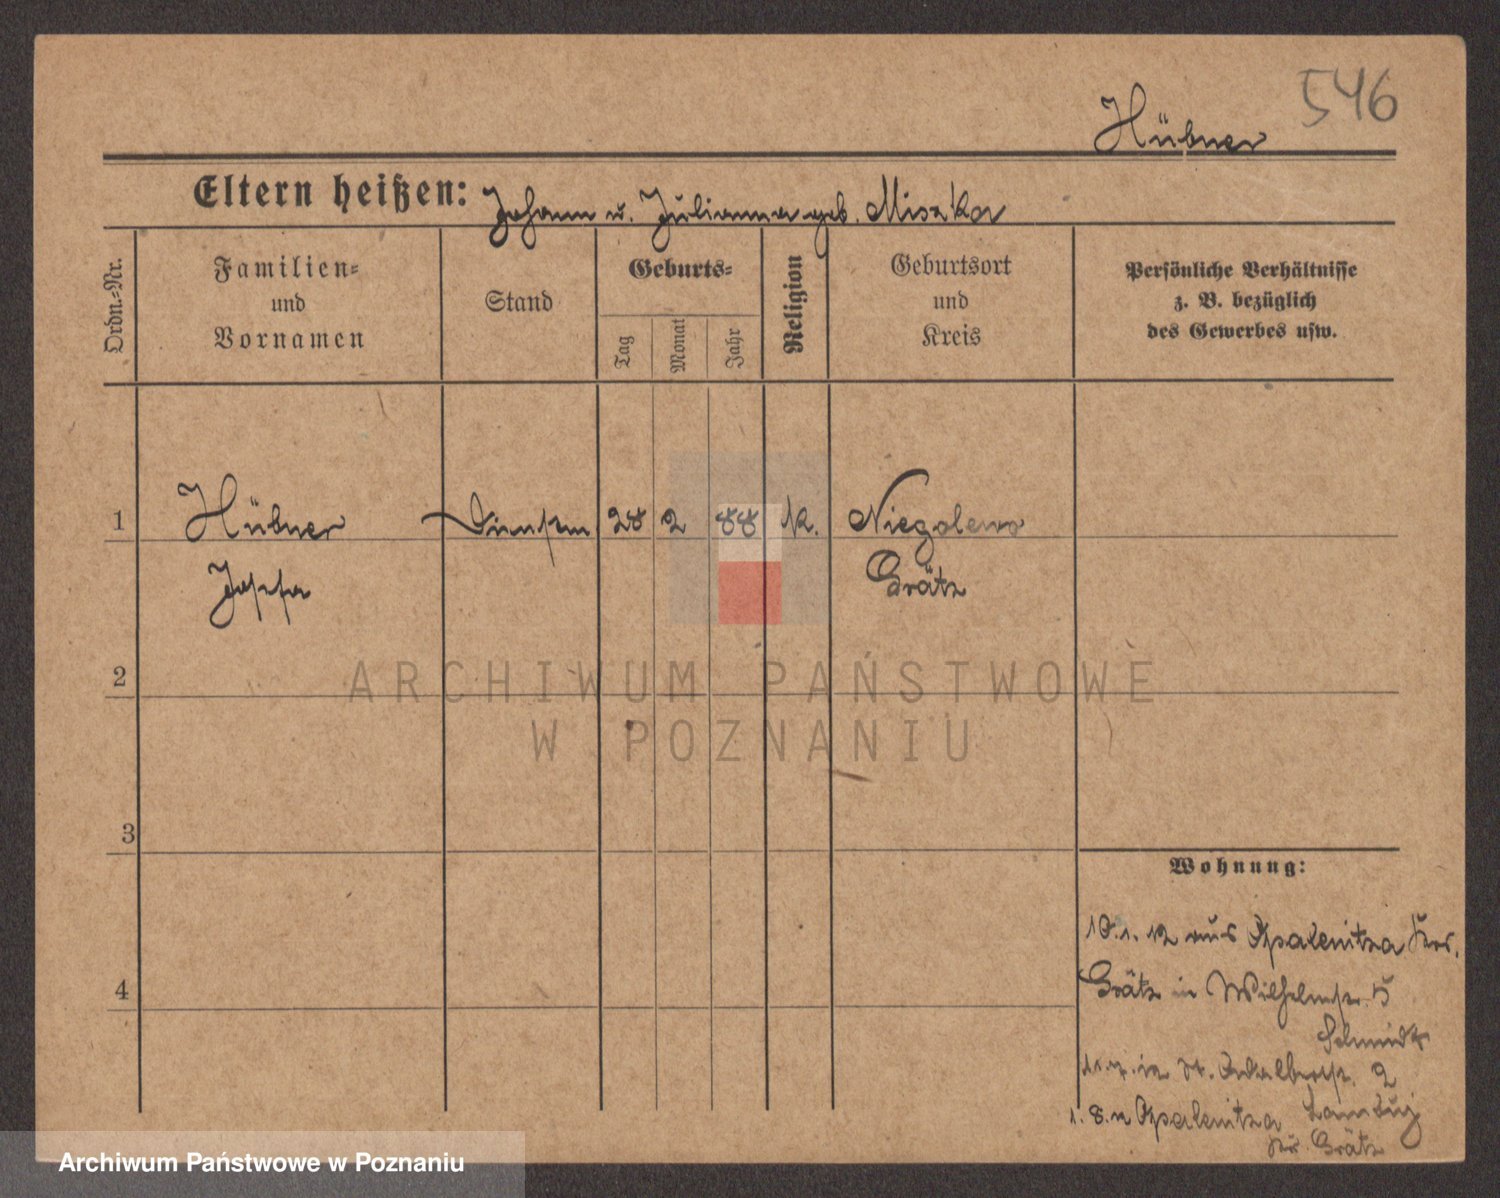 546
Hübner
Eltern heißen: Johann u. Julianna geb. Miszka
Ordn.=Nr.
Familien=
und
Vornamen
Stand
Geburts=
Tag
Monat
Jahr
Religion
Geburtsort
und
Kreis
Persönliche Verhältnisse
z. B. bezüglich
des Gewerbes usw.
1 Hübner 28 2 88 k. Niegolewo
Josefa Grätz
2
3
4
Wohnung:
10.1.12 aus Opalenitza Krs.
Grätz in Wilhelmstr. 5
Schmidt
11.7.12 St. Adalbertstr. 2
1.8. n Opalenitza
Kr. Grätz
ARCHIWUM PAŃSTWOWE
W POZNANIU
Archiwum Państwowe w Poznaniu